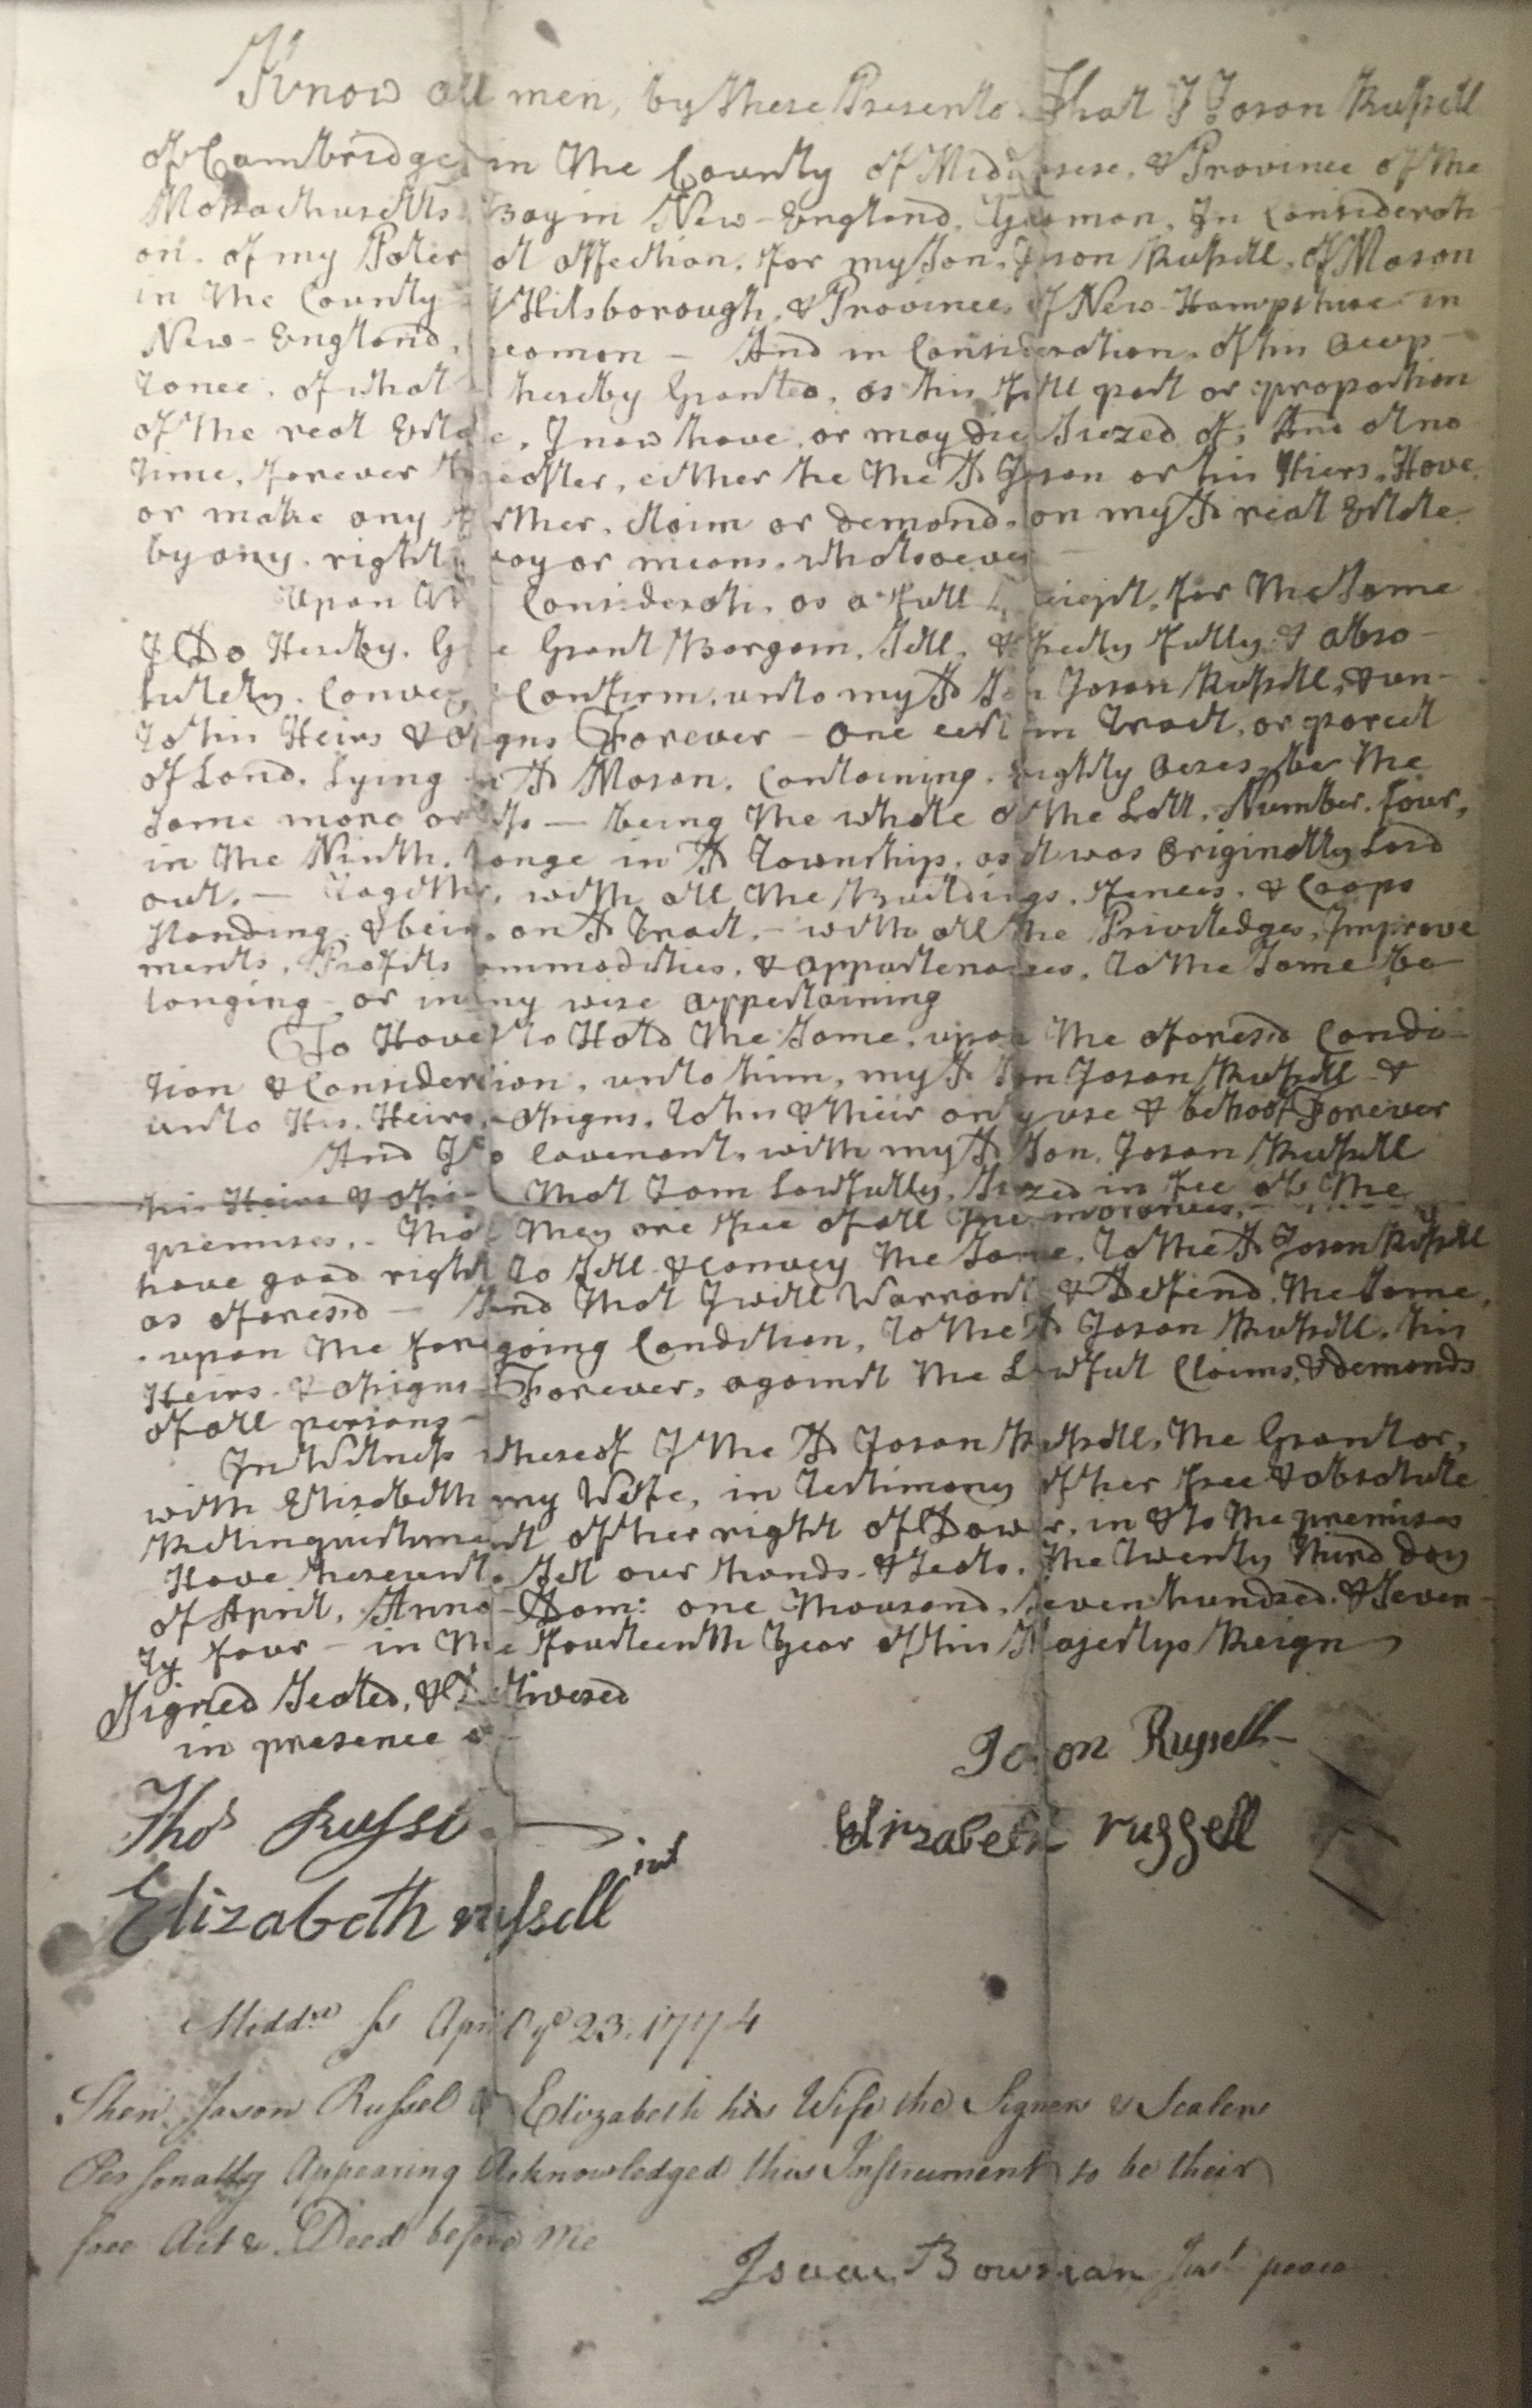 Know all men, by these Presents That I Jason Russell
of Cambridge in the County of Middlesex, & Province of the
Massachusetts Bay in New-England, Yeoman, In Considerati
on. of my Pater al affection, for my Son, Jason Russell, of Mason
in the County Hilsborough, & Province of New-Hampshire in
New-England, yeoman – And in Consideration, of his accep–
tance, of what hereby Granted, as his full part or proportion
of the real Estate, I now have, or may die Siezed of, And at no
time, forever hereafter, either he the Sd Jason or his Hiers, Have
or make any further, claim or demand, on my Sd real Estate
by any right way or means, whatsoever
Upon Considerati, as a full Reciept, for the Same
I Do Hereby, G e Grant Bargain, Sell, & freely fully & abso–
lutely, Convey Confirm, unto my Sd Son Jason Russell, & un–
to his Heirs & asigns Forever – one certain Tract, or parcel
of Land, Lying in Sd Mason, Containing, Eighty acres, be the
same more or less — being the whole of the Lott, Number, four,
in the Ninth, Range in Sd Township, as it was Originally Laid
out, — Together, with all the Buildings, fences, & Coops
Standing, & being on Sd Tract, – with all the Priviledges, Improve
ments, Profits ommodities, & appurtenances, to the Same be–
longing or in any wise appertaining
To Have & to Hold the Same, upon the aforesd Condi–
tion & Consideration, unto him, my Sd Son Jason Russell &
unto His, Heirs, Assigns, to his & their only use & behoof Forever
And I do Covenant, with my Sd Son, Jason Russell
his Heirs & assi– that I am Lawfully, Siezed in fee of the
premises, – that they are free of all
have good right to Sell & Convey the Same, to the Sd Jason Russell
as aforesd — And that I will Warrant & Defend, the Same,
upon the foregoing Condition, to the Sd Jason Russell, his
Heirs & assigns Forever, against the Lawful Claims, & demands
of all persons –
In Witness whereof I the Sd Jason Russell, the Grantor,
with Elisabeth my Wife, in Testimony of her free & absolute
Relinquishment of her right of Dower, in & to the premises
Have hereunto Set our hands & Seals, the Twenty third day
of April, Anno–Dom: one thousand, Seven hundred, & Seven–
ty four – in the fourteenth Year of his Majestys Reign
Signed Sealed, & Delivered
in presence of
Jason Russell–
Thos Russel
Elizabeth russell
Elizabeth russell
Middx Ss April ye 23. 1774
Then Jason Russel & Elizabeth his Wife the Signers & Sealers
Personally Appearing Acknowledged this Instrument to be their
free Act & Deed before me
Isaac Bowman Just peace